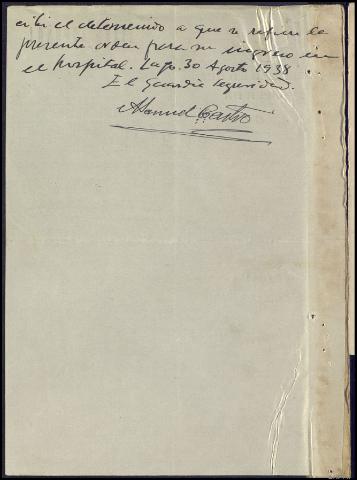 cibi el detenido a que se refiere la
presente orden para su ingreso en
el hospital. Lugo. 30 Agosto 1938
El Guardia Seguridad.
Manuel Castro